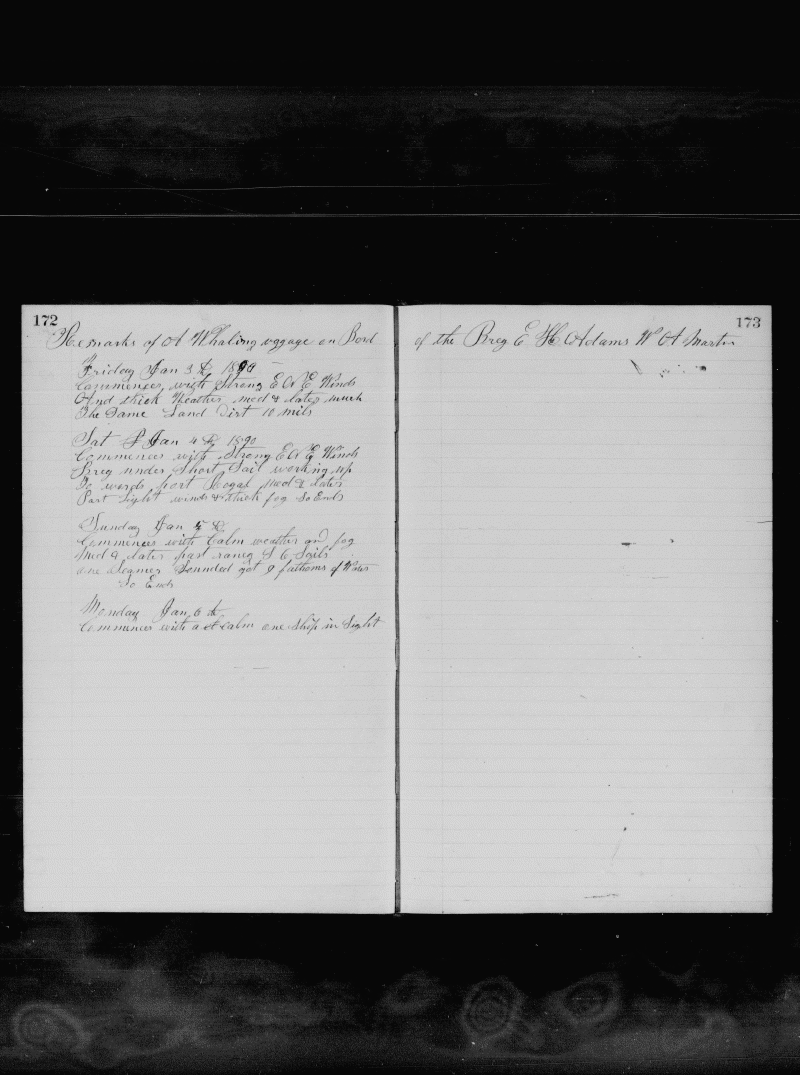 172
Remarks of A Whaling vogage on Bord
Friday Jan 3 d 1890
Commences with Strong E N E Winds
And thick Weather mid & later much
The Same Land Dist 10 mils
Sat Jan 4 th 1890
Commences with Strong E N E Winds
Breg under Short Sail working up
To words port Rogal mid & later
Part Light winds & thick fog So Ends
Sunday Jan 5 th
Commences with Calm weather and fog
mid & later part 6 Sails
one Sounded got 9 fathoms of Water
So Ends
Monday Jan 6 th
Commences with a calm one Ship in Sight
173
of the Breg E H Adams W A Martin